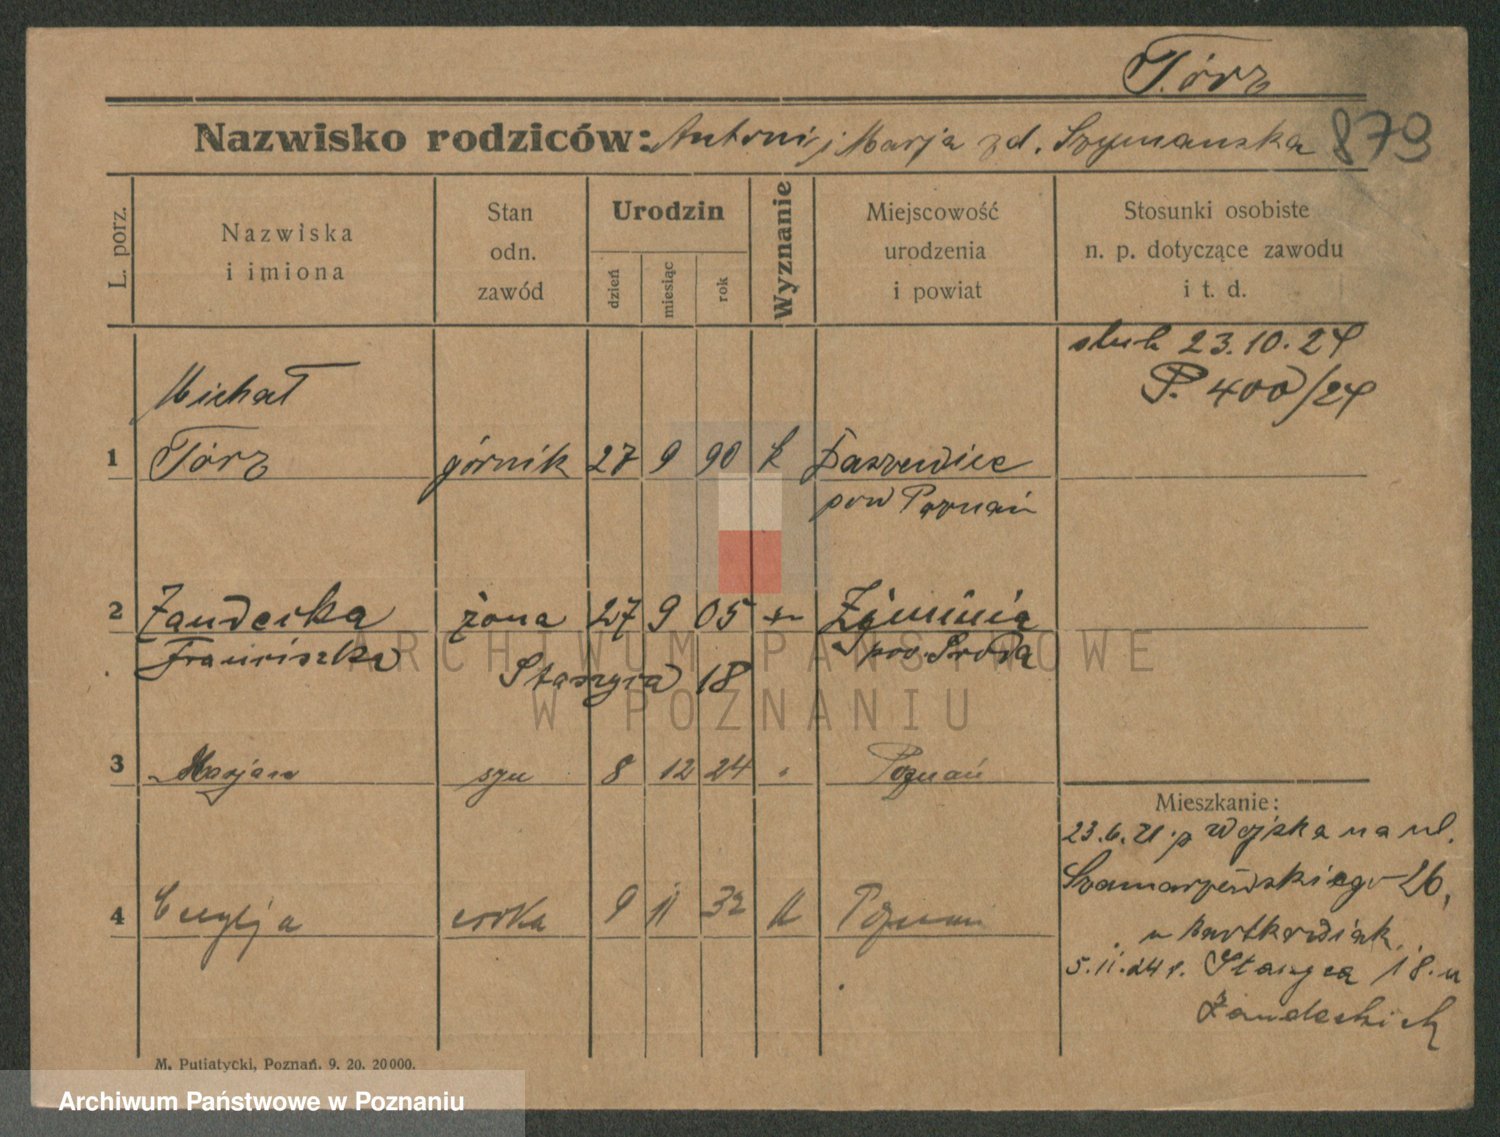 Tórz
Nazwisko rodziców: Antoni i Marja zd. Szymanska 879
L. porz.
Nazwiska
i imiona
Stan
odn.
zawód
Urodzin
dzień
miesiąc
rok
Wyznanie
Miejscowość
urodzenia
i powiat
Stosunki osobiste
n. p. dotyczące zawodu
i t. d.
ślub 23.10.24
P. 400/24
Michał
1 Tórz górnik 27 9 90 k Daszewice
pow Poznań
2 Żandecka żona 27 9 05 Zimin
Franciszka pow. Środa
Staszyca 18
3 Marjan syn 8 12 24 Poznań
Mieszkanie:
23.6.21. p Wojska na ul.
Szamarzewskiego 26,
u Bartkowiak
4 Cecylja corka 9 11 32 k Poznan
5.11.24 r. Staszyca 18. u
Żandeckich
M. Putiatycki, Poznań. 9. 20. 20000.
ARCHIWUM PAŃSTWOWE
W POZNANIU
Archiwum Państwowe w Poznaniu